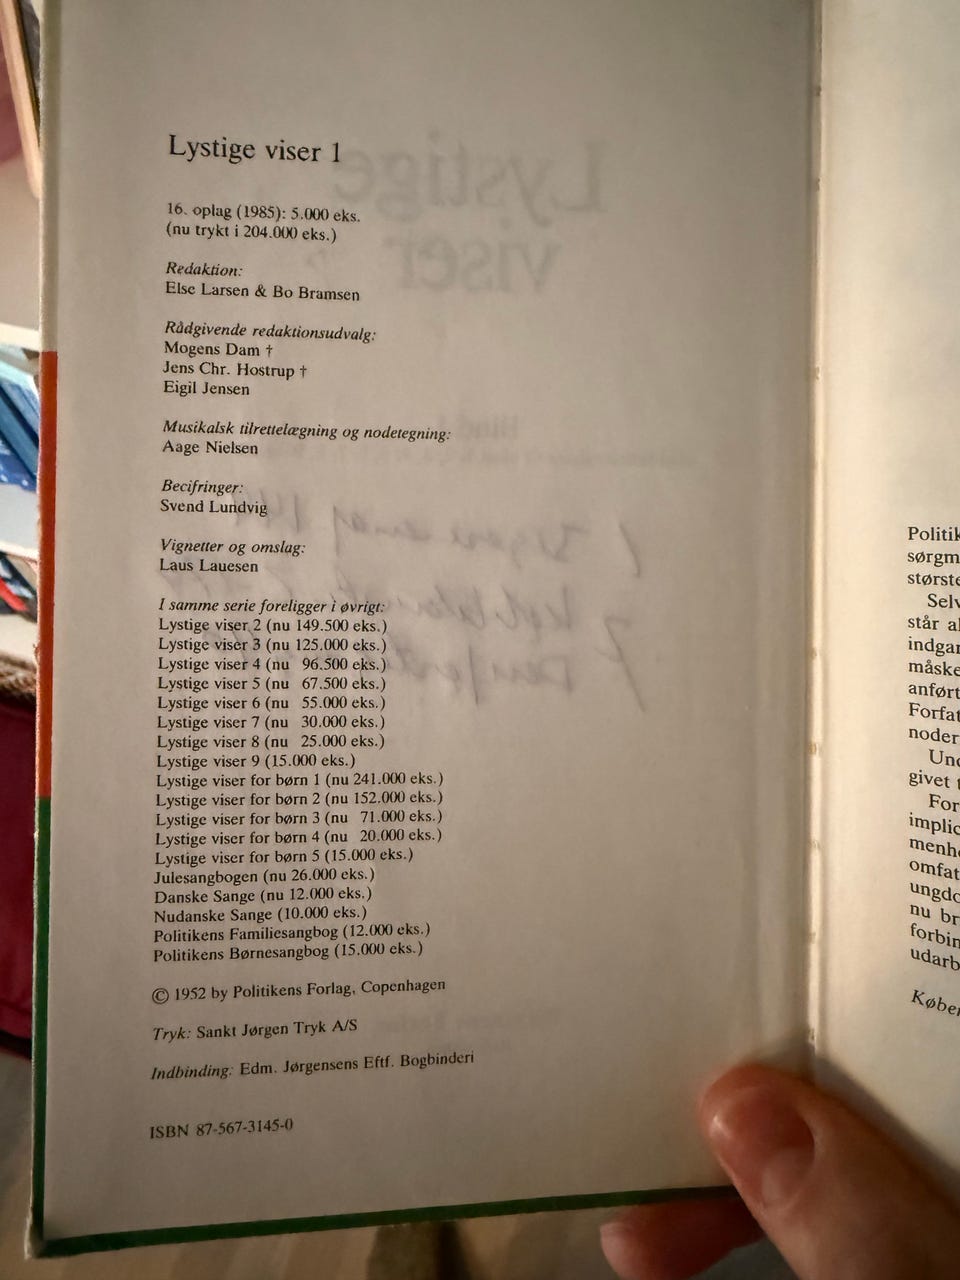 Lystige viser 1
16. oplag (1985): 5.000 eks.
(nu trykt i 204.000 eks.)
Redaktion:
Else Larsen & Bo Bramsen
Rådgivende redaktionsudvalg:
Mogens Dam †
Jens Chr. Hostrup †
Eigil Jensen
Musikalsk tilrettelægning og nodetegning:
Aage Nielsen
Becifringer:
Svend Lundvig
Vignetter og omslag:
Laus Lauesen
I samme serie foreligger i øvrigt:
Lystige viser 2 (nu 149.500 eks.)
Lystige viser 3 (nu 125.000 eks.)
Lystige viser 4 (nu 96.500 eks.)
Lystige viser 5 (nu 67.500 eks.)
Lystige viser 6 (nu 55.000 eks.)
Lystige viser 7 (nu 30.000 eks.)
Lystige viser 8 (nu 25.000 eks.)
Lystige viser 9 (15.000 eks.)
Lystige viser for børn 1 (nu 241.000 eks.)
Lystige viser for børn 2 (nu 152.000 eks.)
Lystige viser for børn 3 (nu 71.000 eks.)
Lystige viser for børn 4 (nu 20.000 eks.)
Lystige viser for børn 5 (15.000 eks.)
Julesangbogen (nu 26.000 eks.)
Danske Sange (nu 12.000 eks.)
Nudanske Sange (10.000 eks.)
Politikens Familiesangbog (12.000 eks.)
Politikens Børnesangbog (15.000 eks.)
© 1952 by Politikens Forlag, Copenhagen
Tryk: Sankt Jørgen Tryk A/S
Indbinding: Edm. Jørgensens Eftf. Bogbinderi
ISBN 87-567-3145-0
Lystige
viser
Politik
sørgm
største
Selv
står al
indgar
måske
anført
Forfat
noder
Und
givet t
For
implic
menhe
omfat
ungdo
nu br
forbin
udarb
Købe